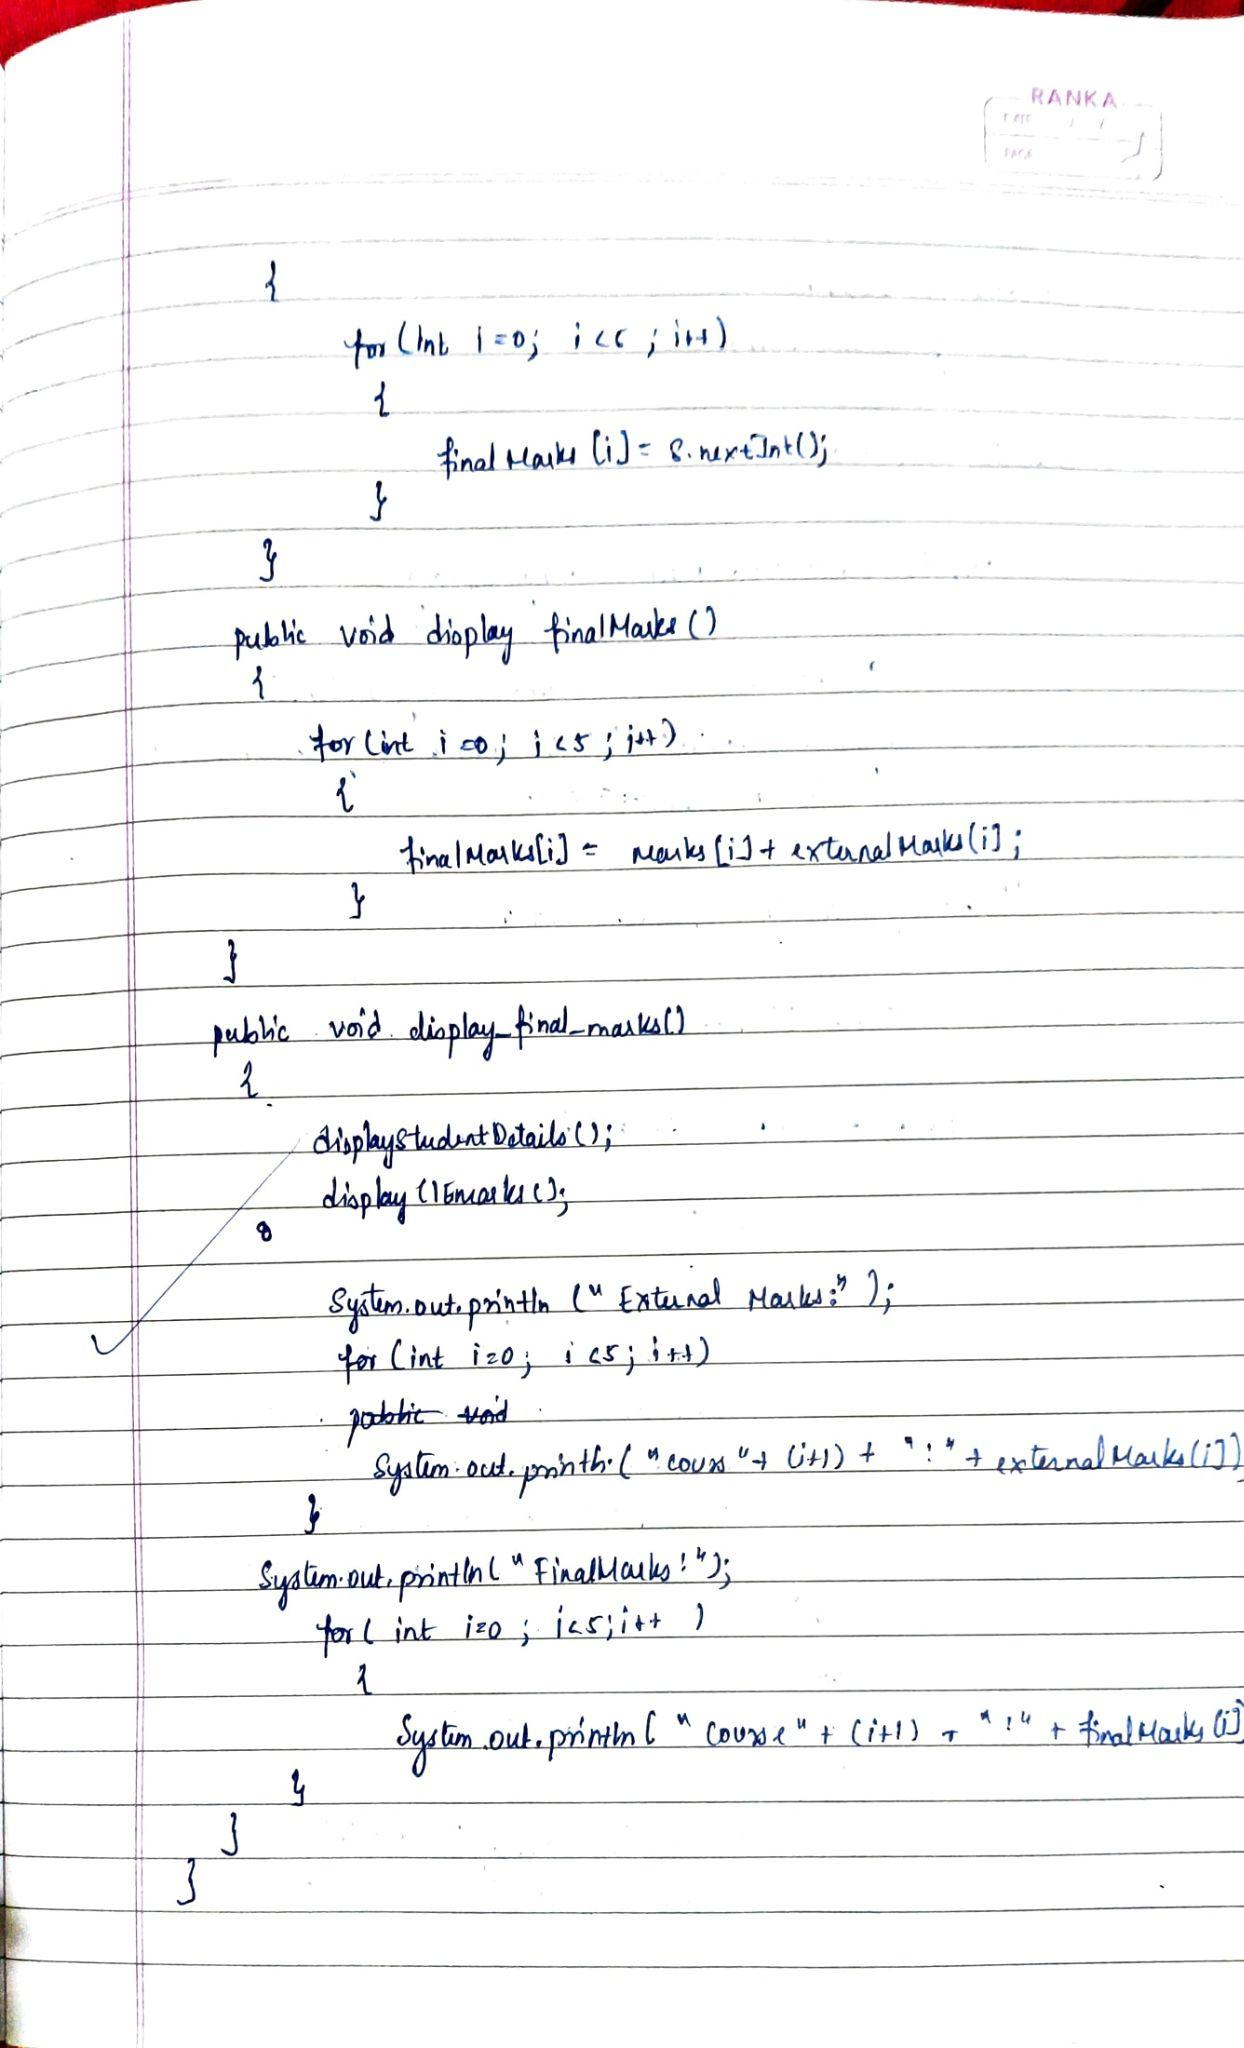 RANKA
DATE / /
PAGE
{
for (int i=0; i<5; i++)
{
final Marks [i] = S.nextInt();
}
}
public void display finalMarks ()
{
for (int i=0; i<5; i++)
{
finalMarks[i] = marks [i] + external Marks[i];
}
}
public void display_final_marks()
{
displayStudentDetails ();
display CIEmarks ();
System.out.println (" External Marks:" );
for (int i=0; i<5; i++)
public void
System.out.println ( " cours " + (i+1) + " : " + external Marks[i])
}
System.out.println( " FinalMarks : ");
for ( int i=0 ; i<5; i++ )
{
System.out.println ( " Course " + (i+1) + " : " + final Marks [i]
}
}
}